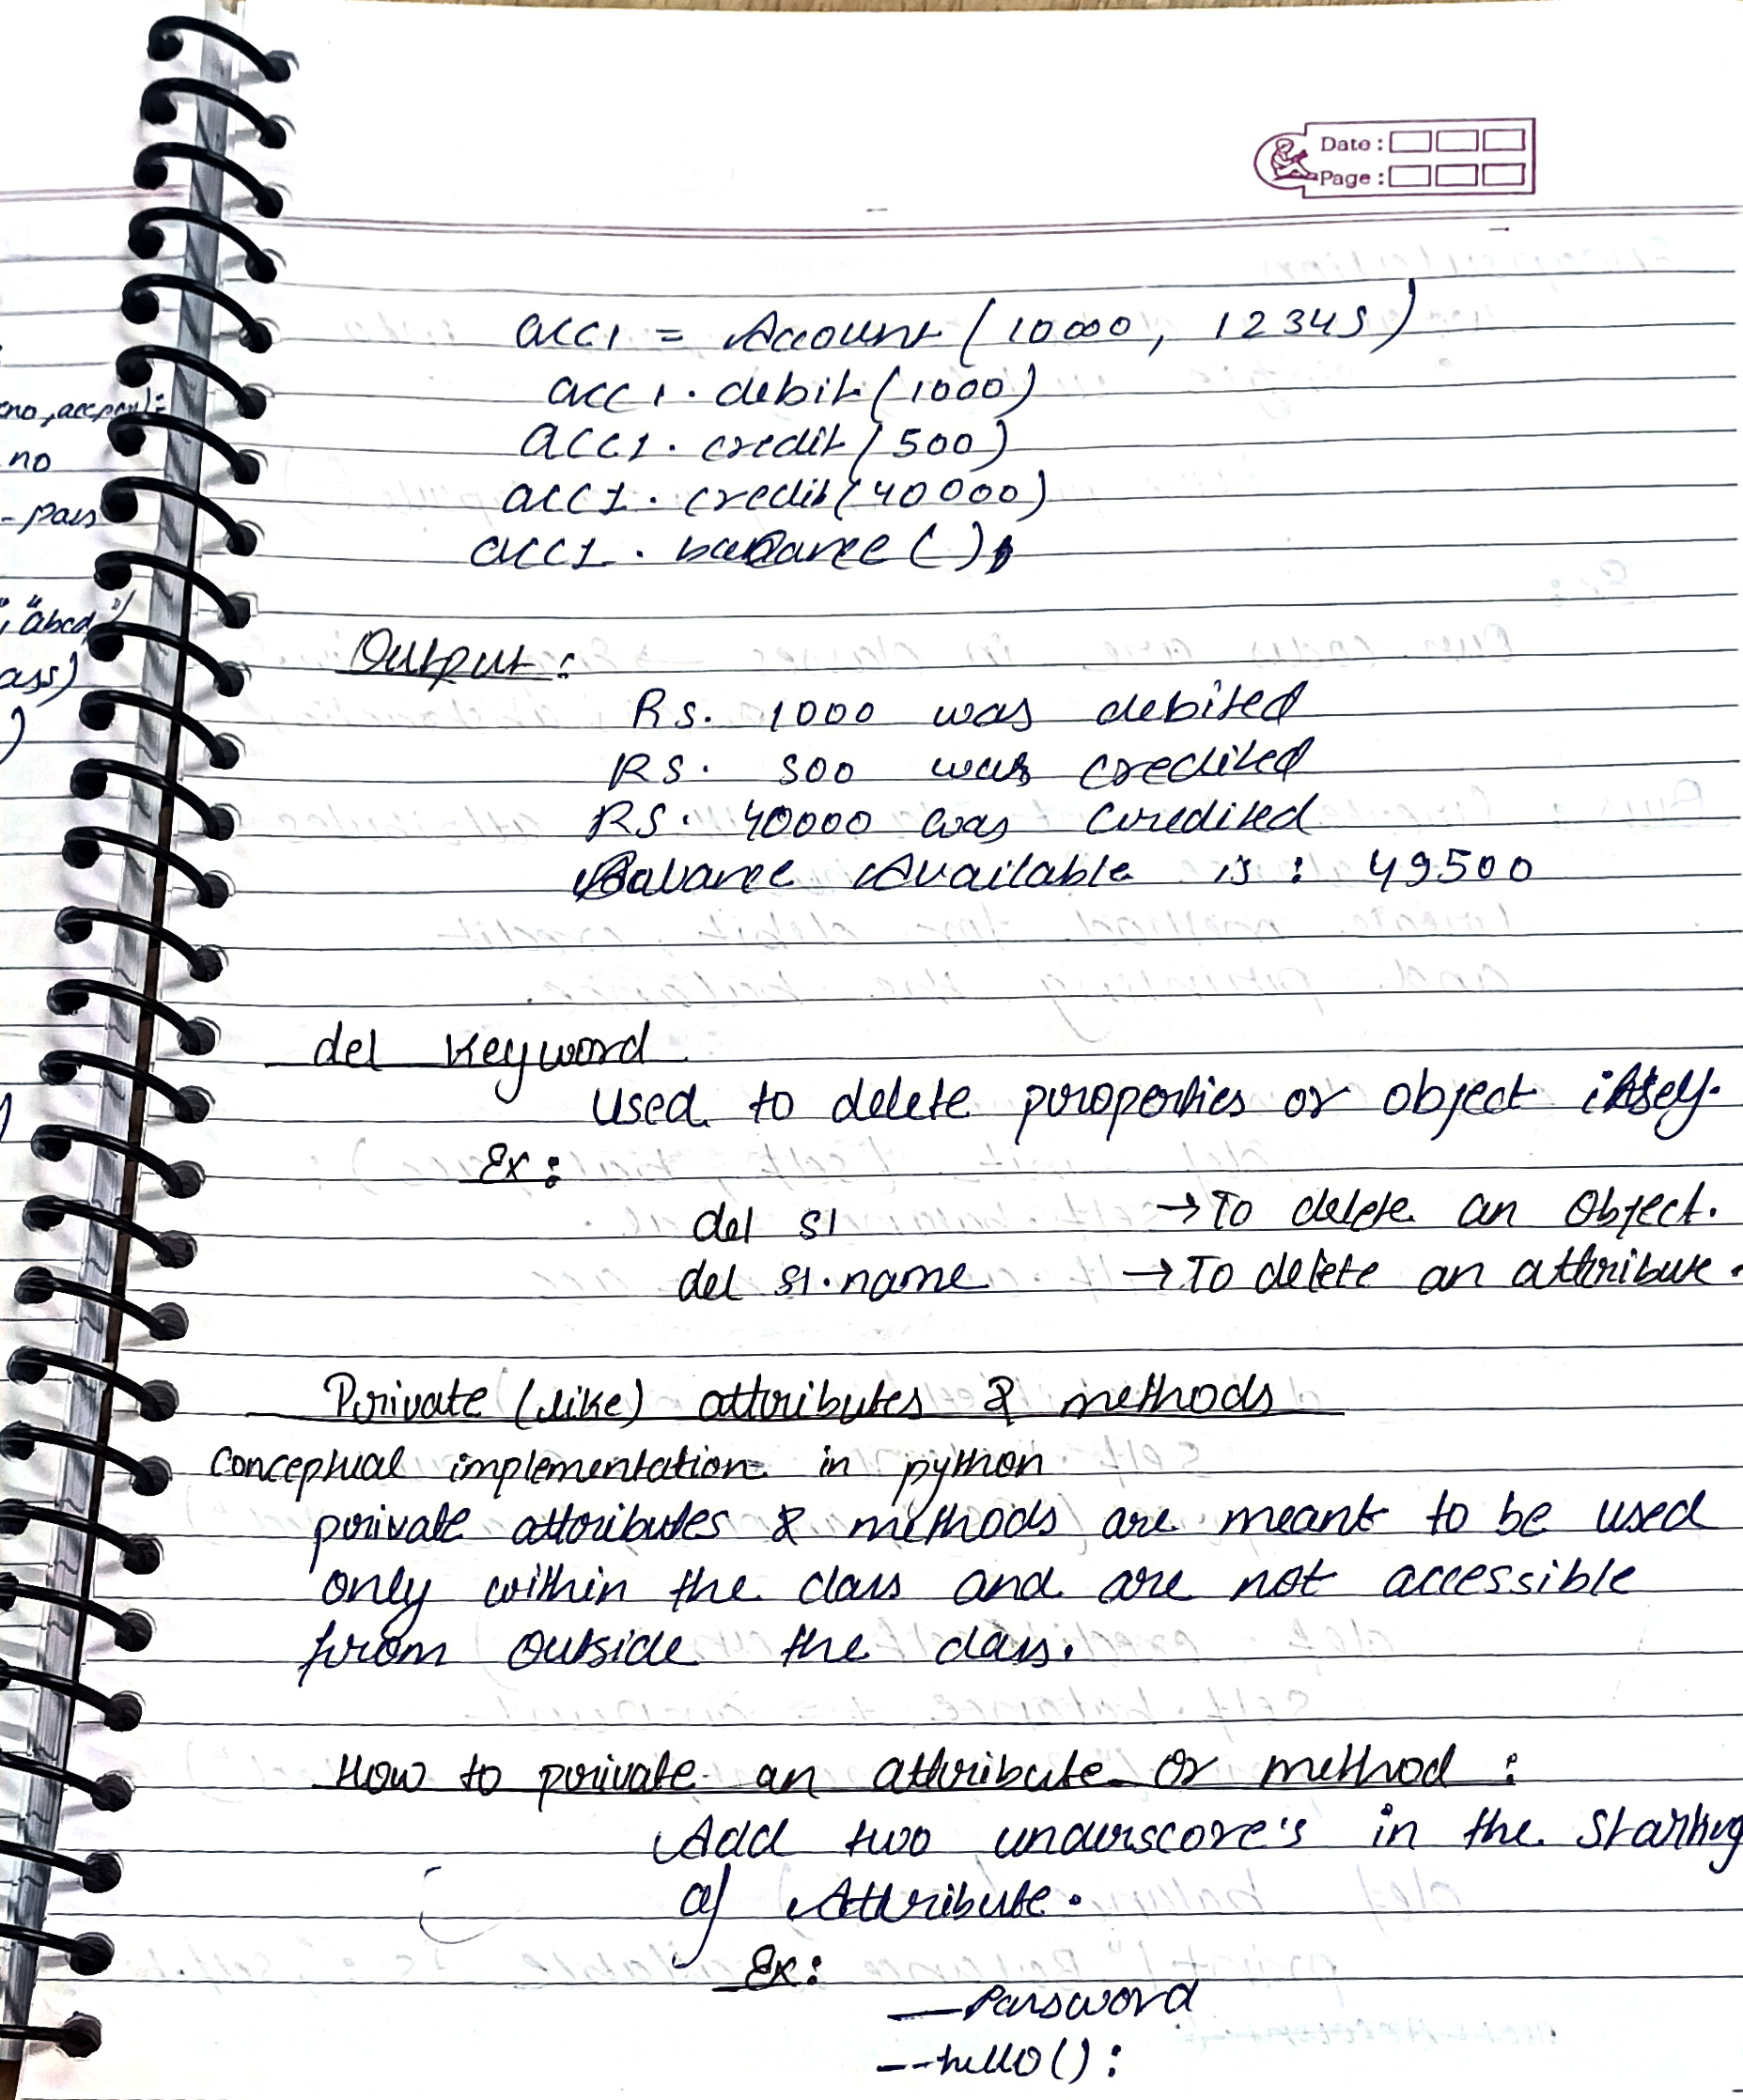 Date :
Page :
acc1 = Account (10000, 12345)
acc1.debit(1000)
acc1.credit(500)
acc1.credit(40000)
acc1.balance()
Output:
Rs. 1000 was debited
RS. 500 was credited
RS. 40000 was credited
Balance Available is : 49500
del keyword
used to delete properties or object itself.
Ex:
del s1 → To delete an Object.
del s1.name → To delete an attribute.
Private (like) attributes & methods
Conceptual implementation in python
private attributes & methods are meant to be used
only within the class and are not accessible
from outside the class.
How to private an attribute or method :
Add two underscore's in the starting
of Attribute.
Ex:
__Password
__hello():
no, acc_pass):
no
- pass
", "abcd")
ass)
)